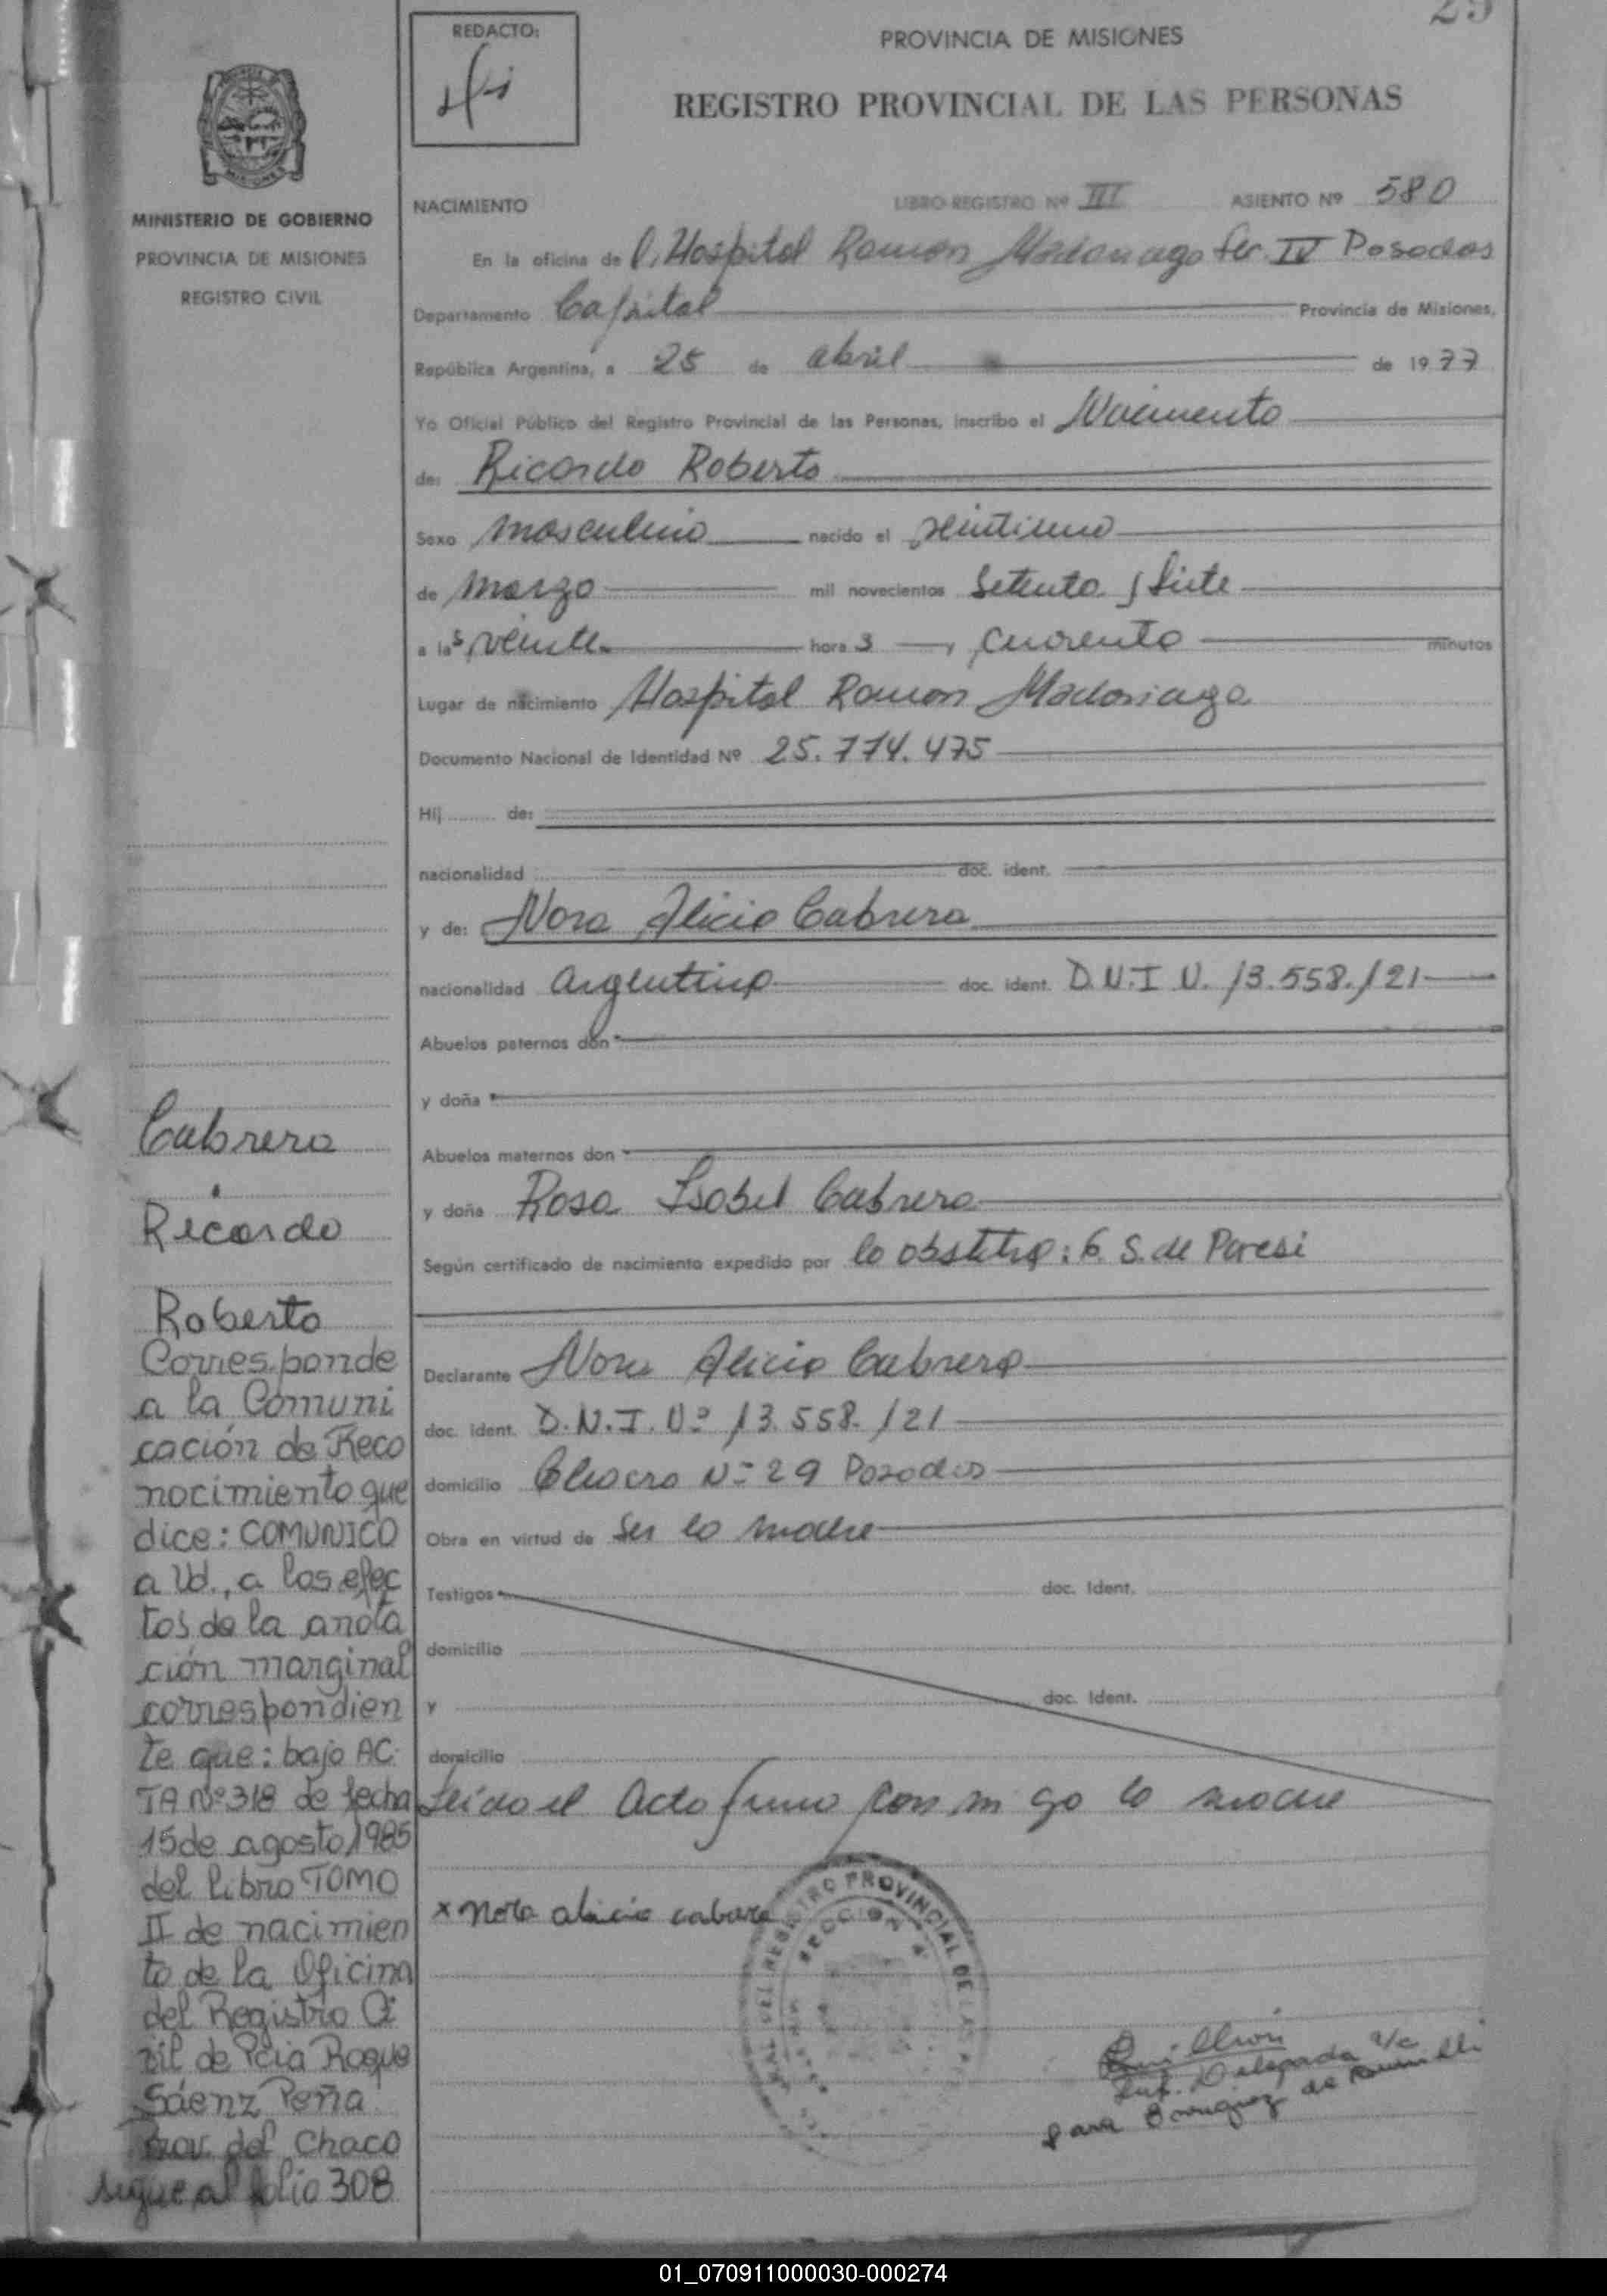 29
REDACTO:
PROVINCIA DE MISIONES
REGISTRO PROVINCIAL DE LAS PERSONAS
MINISTERIO DE GOBIERNO
PROVINCIA DE MISIONES
REGISTRO CIVIL
NACIMIENTO LIBRO-REGISTRO Nº III ASIENTO Nº 580
En la oficina de Hospital Ramon Madariaga Sec. IV Posadas
Departamento Capital Provincia de Misiones,
República Argentina, a 25 de abril de 1977
Yo Oficial Público del Registro Provincial de las Personas, inscribo el Nacimiento
de: Ricardo Roberto
Sexo masculino nacido el veintiuno
de marzo mil novecientos Setenta y Siete
a las veinte hora s y cuarenta minutos
Lugar de nacimiento Hospital Ramon Madariaga
Documento Nacional de Identidad Nº 25.774.475
Hij de:
nacionalidad doc. ident.
y de: Nora Alicia Cabrera
nacionalidad argentina doc. ident. D.N.I N. 13.558.121
Abuelos paternos don
y doña
Abuelos maternos don
y doña Rosa Isabel Cabrera
Según certificado de nacimiento expedido por la obstetra: G. S. de Paresi
Declarante Nora Alicia Cabrera
doc. ident. D.N.I. Nº 13.558.121
domicilio Nº 29 Posadas
Obra en virtud de ser la madre
Testigos doc. Ident.
domicilio
y doc. Ident.
domicilio
Leida el Acta firma conmigo la madre
x nora alicia cabrera
REGISTRO PROVINCIAL DE LAS
SECCION 4
Delegada a/c
para
Cabrera
Ricardo
Roberto
Corresponde
a la Comuni
cación de Reco
nocimiento que
dice: COMUNICO
a Ud., a los efec
tos de la anota
ción marginal
correspondien
te que: bajo AC
TA Nº 318 de fecha
15 de agosto 1985
del Libro TOMO
II de nacimien
to de la Oficina
del Registro Ci
vil de Pcia Roque
Sáenz Peña
Prov. del Chaco
sigue al folio 308
01_070911000030-000274